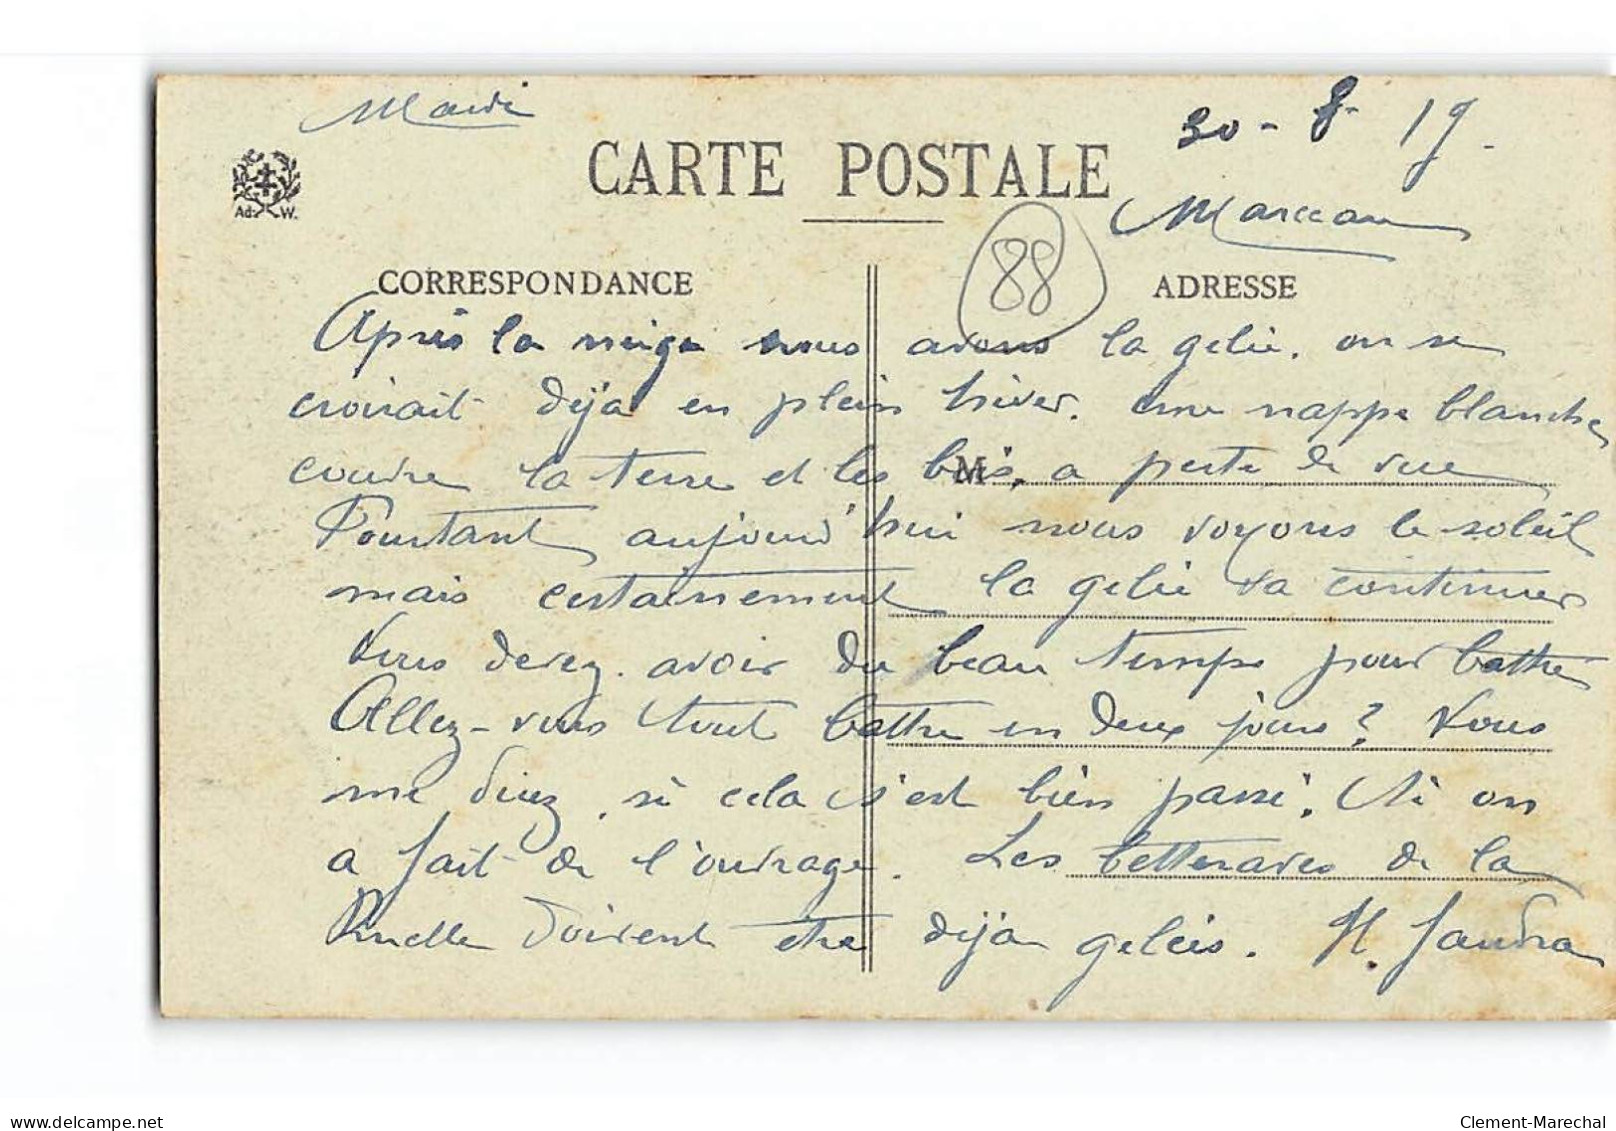 Mardi
30 - 8 - 19 -
CARTE POSTALE
Marceau
Ad. W.
88
CORRESPONDANCE
ADRESSE
Après la neige nous avons la gelée. on se
croirait déjà en plein hiver. une nappe blanche
couvre la terre et les bois, a perte de vue
M
Pourtant aujourd'hui nous voyons le soleil
mais certainement la gelée va continuer
Vous devez avoir du beau temps pour battre
Allez-vous tout battre en deux jours ? Vous
me direz, si cela s'est bien passé. Si on
a fait de l'ouvrage. Les betteraves de la
Ruelle doivent etre déjà gelées. Il faudra
delcampe.net
Clement-Marechal